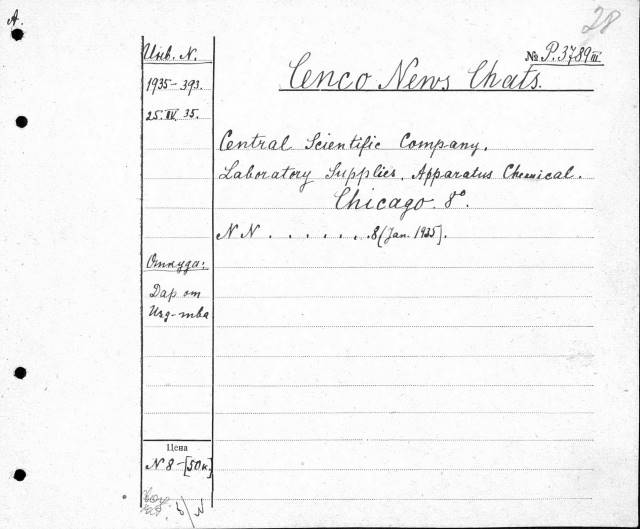 A.
28
Инв. N.
№ P.3789 III
Cenco News Chats.
1935-393.
25.IV.35.
Central Scientific Company.
Laboratory Supplies. Apparatus Chemical.
Chicago. 8°.
NN . . . . . . 8 (Jan. 1935).
Откуда:
Дар от
Изд-тва
Цена
N 8-[50к.]